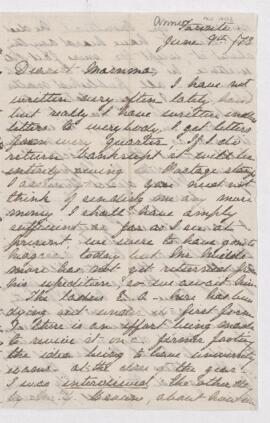 Annie
Favorite
June 9th /78
Dearest Mamma
I have not
written very often lately
but really I have written
letters to everybody. I get letters
from every quarter. If I do
return bankrupt it will be
entirely owing to Postage stamps
you need not
think of sending me any more
money I shall have amply
sufficient as far as I see at
present. We were to have gone to
today but Mr
more has not yet returned from
his expedition so we await him
The Ladies
dying out under its first form
& there is an effort being made
to revive it on a firmer footing
the idea being to have university
exams at the close of the year.
I was interviewed the other day
by about